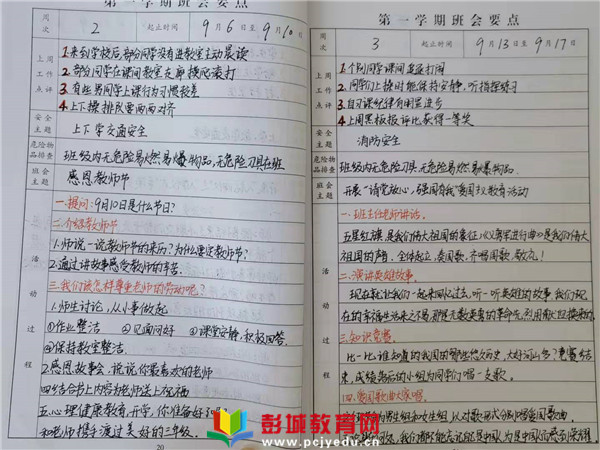 周次 2 起止时间 9月6日至9月10日
上周工作点评
1.来到学校后,部分同学没有进教室主动晨读
2.部分同学在课间教室走廊摸爬滚打
3.有些男同学上课行为习惯较差
4.上下操排队要两两对齐
安全主题 上下学交通安全
危险物品排查 班级内无危险易燃易爆物品,无危险刀具在班
班会主题 感恩教师节
活动过程
一.提问:9月10日是什么节日?
二.介绍教师节
1.师说一说教师节的来历?为什么要定教师节?
2.通过讲故事感受教师的辛苦.
三.我们该怎样尊重老师的劳动呢?
1.师生讨论,从小事做起
①作业整洁 ②见面问好 ③课堂安静,积极回答
④保持教室整洁.
2.感恩故事会,说说你最喜欢的老师
四.结合书上内容为老师送上祝福
五.心理健康教育,开学,你准备好了吗?
和老师携手渡过美好的三年级.
20
第一学期班会要点
周次 3 起止时间 9月13日至9月17日
上周工作点评
1.个别同学课间追逐打闹
2.同学们上操时能保持安静,听指挥练习
3.自习课纪律有明显进步
4.上周黑板报评比获得一等奖
安全主题 消防安全
危险物品排查 班级内无危险刀具,无危险易燃易爆物品.
班会主题 开展"请党放心,强国有我"爱国主义教育活动
活动过程
一.班主任老师讲话.
五星红旗是我们伟大祖国的象征,《义勇军进行曲》是我们伟大
祖国的声,全体起立,奏国歌,齐唱国歌,敬礼!
二.演讲英雄故事.
现在就让我们一起来回忆过去,听一听英雄的故事,我们现
在的幸福生活来之不易,那是无数英勇的革命先烈用
三.知识竞赛.
比一比谁知道的我国的那些悠久历史,大好河山多?竞赛结
束,成绩落后的小组为同学们唱一支歌.
四.爱国歌曲大家唱.
男生组和女生组,以对歌形式分别唱爱国歌曲.
我们都能
彭城教育网
www.pcjyedu.cn